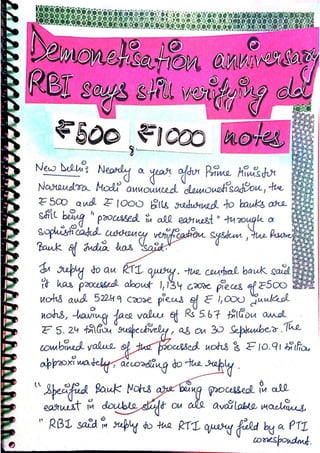 Demonetisation anniversary
RBI says still verifying dd
₹500, ₹1000 notes
New Delhi: Nearly a year after Prime Minister
Narendra Modi announced demonetisation, the
₹500 and ₹1000 bills returned to banks are
still being "processed in all earnest" through a
sophisticated currency verification system, the Reserve
Bank of India has said.
In reply to an RTI query. the central bank said
it has processed about 1,134 crore pieces of ₹500
notes and 52249 crore pieces of ₹1,000 junked
notes, having face value of Rs 5.67 trillion and
₹ 5.24 trillion respectively, as on 30 September. The
combined value of the processed notes is ₹10.91 trillion
approximately, according to the reply.
" Specified Bank Notes are being processed in all
earnest in double shift on all available machines.
" RBI said in reply to the RTI query filed by a PTI
correspondent.